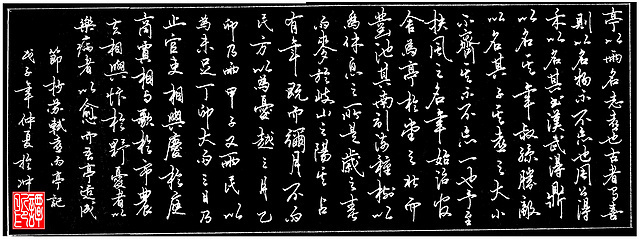 亭以雨名志喜也古者有喜
則以名物示不忘也周公得
禾以名其書漢武得鼎
以名其年叔孫勝敵
以名其子其喜之大小
不齊其示不忘一也予至
扶風之名年始治官
舍為亭於堂之北而
鑿池其南引流種樹以
為休息之所是歲之春
雨麥於岐山之陽其占
有年既而彌月不雨
民方以為憂越三月乙
卯乃雨甲子又雨民以
為未足丁卯大雨三日乃
止官吏相與慶於庭
商賈相與歌於市農
夫相與忭於野憂者以
樂病者以愈而吾亭適成
節抄蘇軾喜雨亭記
戊子年仲夏於